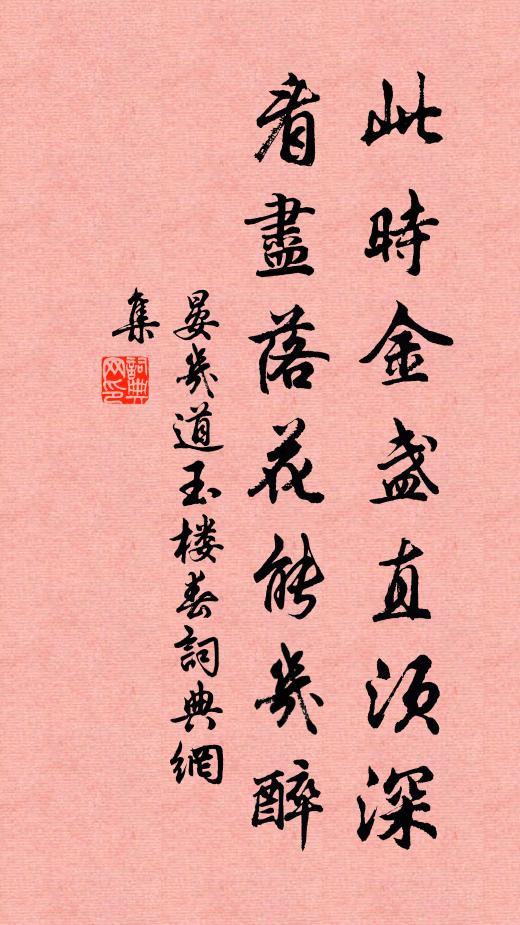 此時金盞直須深
看盡落花能幾醉
晏幾道玉楼春詞典網
集
詞典网印